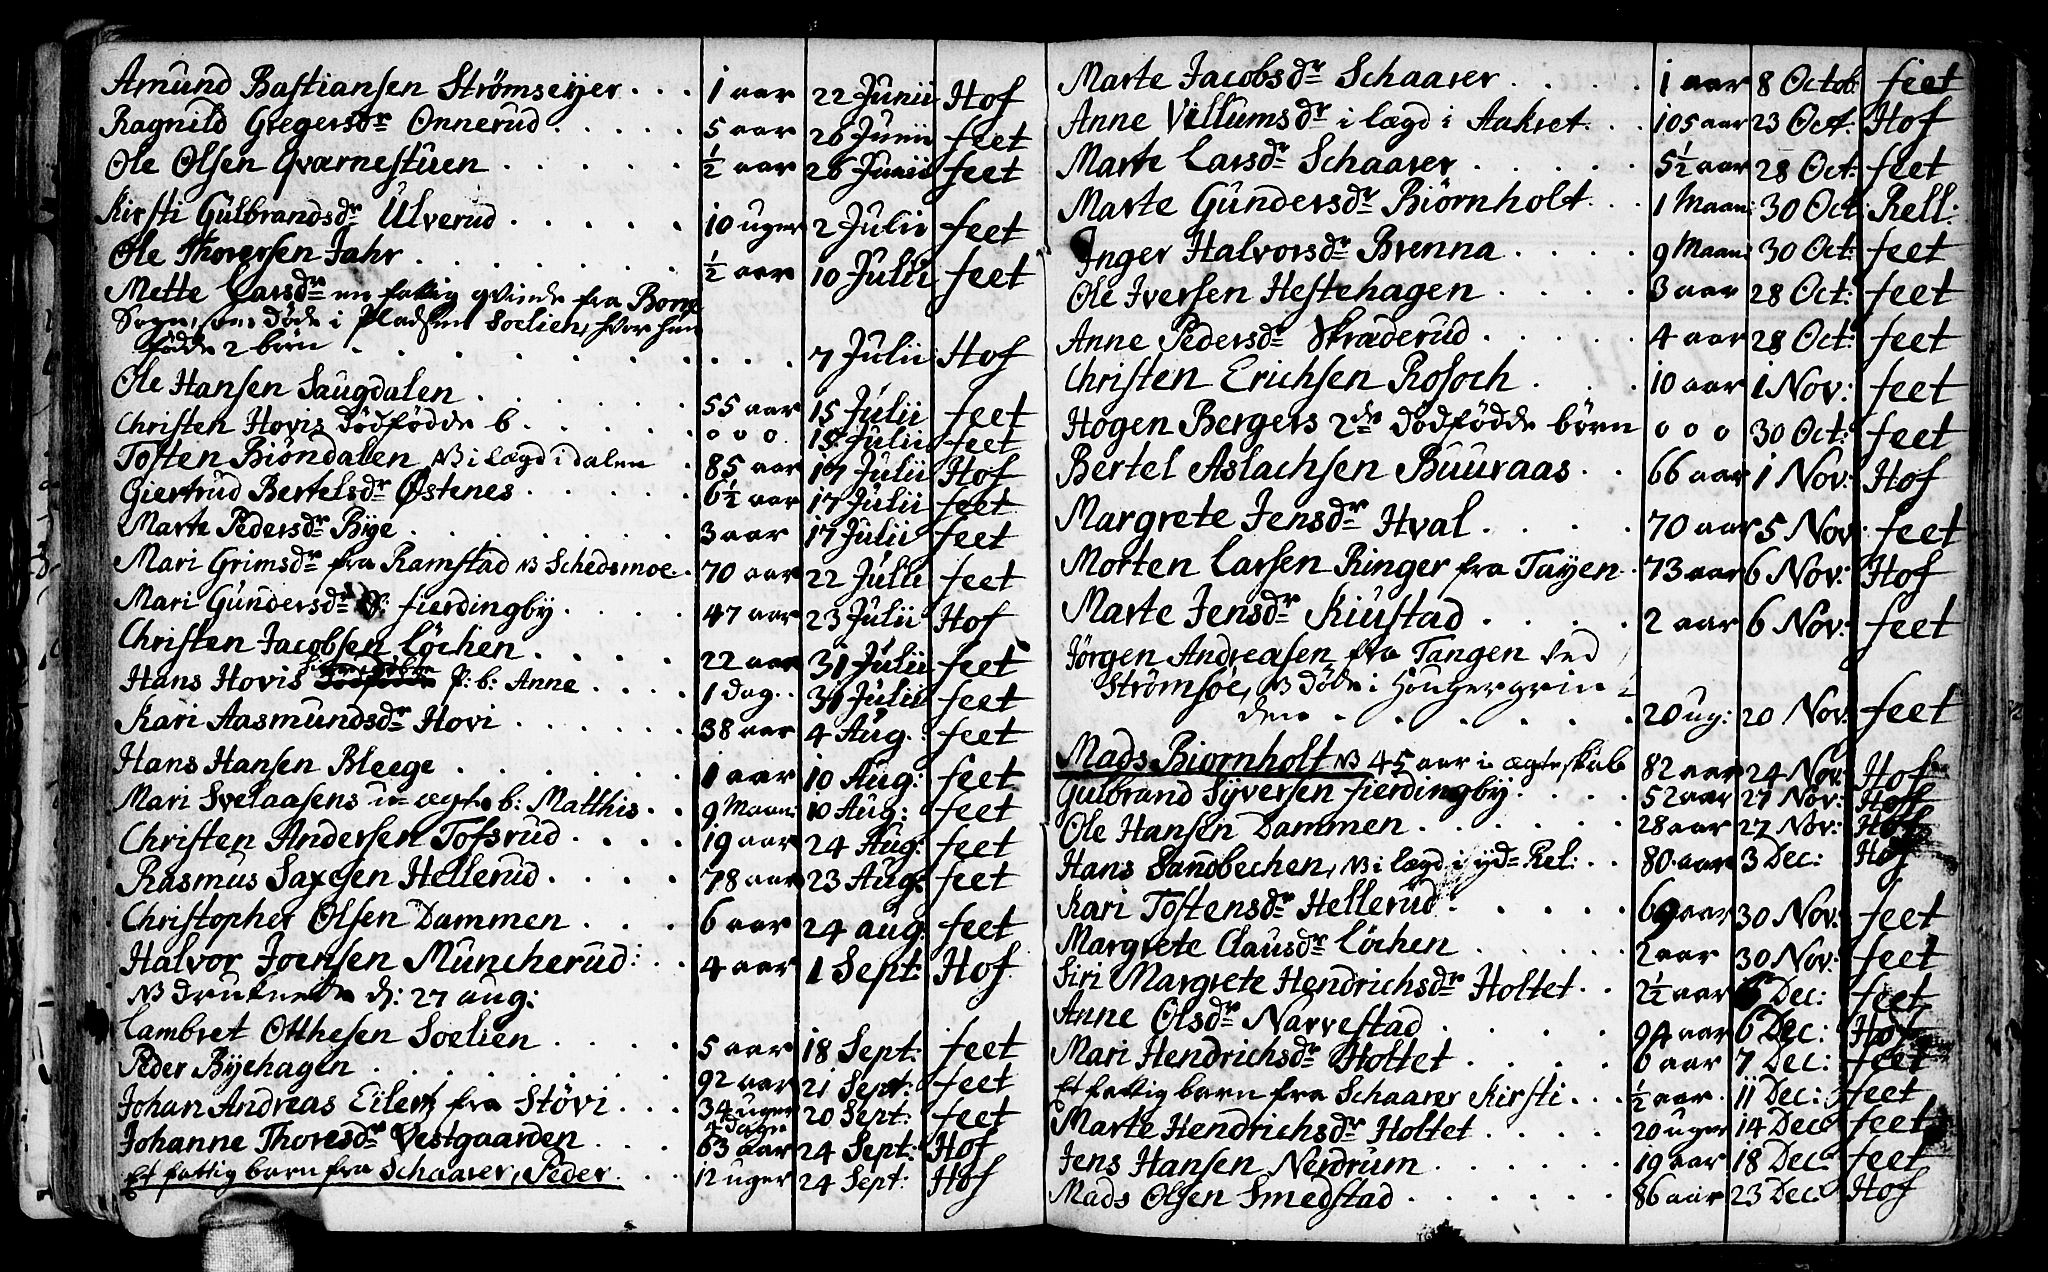 Amund Bastiansen Strömseyer . . . 1 aar 22 Junii Hof
Ragnild Gregersdr Onnerud . . . . . 5 aar 26 Junii feet
Ole Olsen Qværnestuen . . . . . ½ aar 26 Junii feet
Kirsti Gulbrandsdr Ulverud . . . . . 10 uger 2 Julii feet
Ole Thoresen Jahr . . . . . . . ½ aar 10 Julii feet
Mette Larsdr en fattig qvinde fra Borge
Sogn, som döde i Pladsen Soelien, hvor hun
födde 2 börn . . . . . . . . 7 Julii Hof
Ole Hansen Saugdalen . . . . . . 55 aar 15 Julii feet
Christen Hovis dödfödde b . . . . . o o o 15 Julii feet
Tosten Biöndalen NB i lægd i dalen . 85 aar 17 Julii Hof
Giertrud Bertelsdr Østenes . . . . . 6½ aar 17 Julii feet
Marte Pedersdr Bye . . . . . . . 3 aar 17 Julii feet
Mari Grimsdr fra Ramstad NB Schedsmoe . 70 aar 22 Julii feet
Mari Gundersdr fierdingby . . . . 47 aar 23 Julii Hof
Christen Jacobsen Löchen . . . . 22 aar 31 Julii feet
Hans Hovis p: b: Anne . . . . 1 dag . 31 Julii feet
Kari Aasmundsdr Hovi . . . . . . 38 aar 4 Aug. feet
Hans Hansen Bleege . . . . . . . 1 aar 10 Aug: feet
Mari Svelaasens u=ægte b: Matthis . . 9 Maan: 10 Aug: feet
Christen Andersen Tofsrud . . . . 19 aar 24 Aug: feet
Rasmus Saxesen Hellerud . . . . 78 aar 23 Aug: feet
Christopher Olsen Dammen . . . 6 aar 24 aug: feet
Halvor Joensen Müncherud: . . 4 aar 1 Sept: Hof
NB druknede d: 27 aug:
Lambret Otthesen Soelien . . . . 5 aar 18 Sept: feet
Peder Byehagen . . . . . . . 92 aar 21 Sept: feet
Johan Andreas Eilertz fra Stövi . . . 34 uger 4 dage 20 Sept: feet
Johanne Thoresdr Vestgaarden . . . 63 aar 24 Sept: Hof
Et fattig barn fra Schaarer, Peder . . . 12 uger 24 Sept: Hof
Marte Jacobsdr Schaarer . . . . 1 aar 8 Octob: feet
Anne Villumsdr i lægd i Aakret . . 105 aar 23 Oct. Hof
Marte Larsdr Schaarer . . . . . 5½ aar 28 Oct: feet
Marte Gundersdr Biörnholt . . 1 Maan: 30 Oct: Rell:
Inger Halvorsdr Brenna . . . . 9 Maan: 30 Oct: feet
Ole Iversen Hestehagen . . . . 3 aar 28 Oct: feet
Anne Pedersdr Skræderud . . . . . 4 aar 28 Oct: feet
Christen Erichsen Rosoch . . . 10 aar 1 Nov: feet
Hogen Bergers 2de dödfödde börn o o o 30 Oct: feet
Bertel Aslachsen Buuraas . . 66 aar 1 Nov: Hof
Margrete Jensdr Hval . . . . 70 aar 5 Nov: feet
Morten Larsen Ringer fra Tøyen . 73 aar 6 Nov: Hof
Marte Jensdr Kiustad . . . . 2 aar 6 Nov: feet
Jörgen Andreasen fra Tangen ved
Strömsöe, NB döde i Hougergrin
den . . . . . . 20 ug: 20 Nov: feet
Mads Biornholt NB 45 aar i ægteskab 82 aar 24 Nov: Hof
Gulbrand Syversen fierdingby . . . . 52 aar 27 Nov: Hof
Ole Hansen Dammen . . . . . . 28 aar 27 Nov: Hof
Hans Sandbechen, NB i lægd i yd= Rel: . . 80 aar 3 Dec: Hof
Kari Tostensdr Hellerud . . . . . 69 aar 30 Nov: feet
Margrete Clausdr Löchen . . . . . 2 aar 30 Nov: feet
Siri Margrete Hendrichsdr Holtet . . 2½ aar 6 Dec: feet
Anne Olsdr Narvestad . . . . 94 aar 6 Dec: Hof
Mari Hendrichsdr Holtet . . . . 6 aar 7 Dec: feet
Et fattig barn fra Schaarer Kirsti . . . ½ aar . 11 Dec: feet
Marte Hendrichsdr Holtet . . . . 20 uger 14 Dec: feet
Jens Hansen Nerdrum . . . . . . 19 aar 18 Dec: feet
Mads Olsen Smedstad . . . . . . 86 aar 23 Dec: Hof